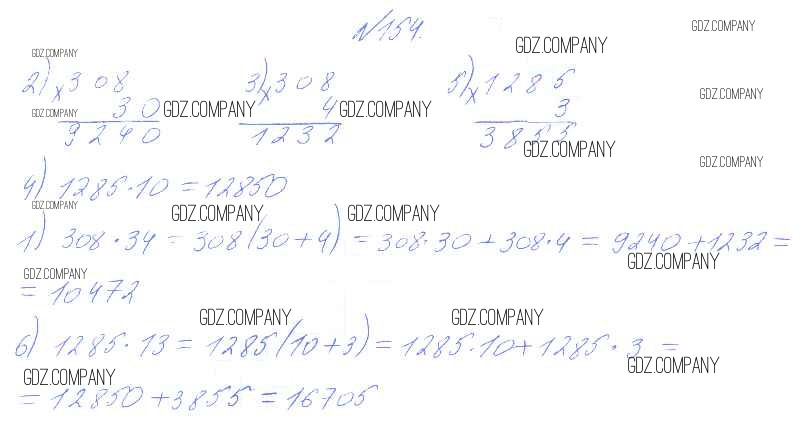 №154.
GDZ.COMPANY
GDZ.COMPANY
GDZ.COMPANY
2) ×308 3) ×308 5) ×1285
GDZ.COMPANY
30 4 3
GDZ.COMPANY GDZ.COMPANY GDZ.COMPANY
9240 1232 3855
GDZ.COMPANY
GDZ.COMPANY
4) 1285·10=12850
GDZ.COMPANY GDZ.COMPANY GDZ.COMPANY
1) 308·34=308(30+4)=308·30+308·4=9240+1232=
GDZ.COMPANY
GDZ.COMPANY
=10472
GDZ.COMPANY GDZ.COMPANY
6) 1285·13=1285(10+3)=1285·10+1285·3=
GDZ.COMPANY
GDZ.COMPANY
=12850+3855=16705